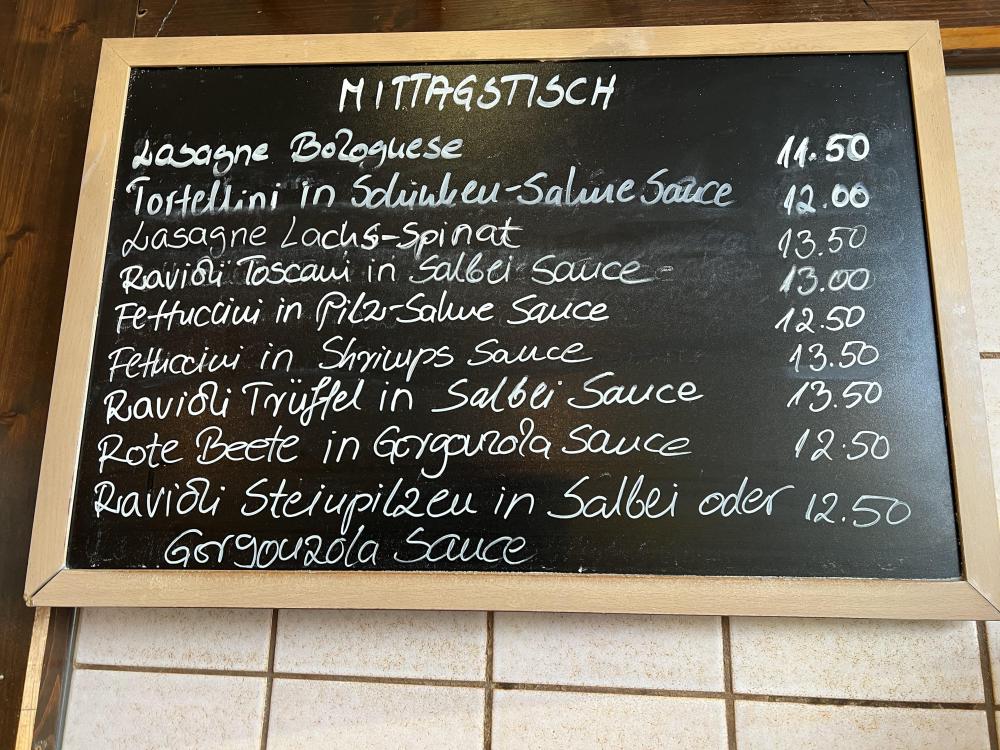 MITTAGSTISCH
Lasagne Bolognese 11.50
Tortellini in Schinken-Sahne Sauce 12.00
Lasagne Lachs-Spinat 13.50
Ravioli Toscani in Salbei Sauce 13.00
Fettuccini in Pilz-Sahne Sauce 12.50
Fettuccini in Shrimps Sauce 13.50
Ravioli Trüffel in Salbei Sauce 13.50
Rote Beete in Gorgonzola Sauce 12.50
Ravioli Steinpilzen in Salbei oder 12.50
Gorgonzola Sauce